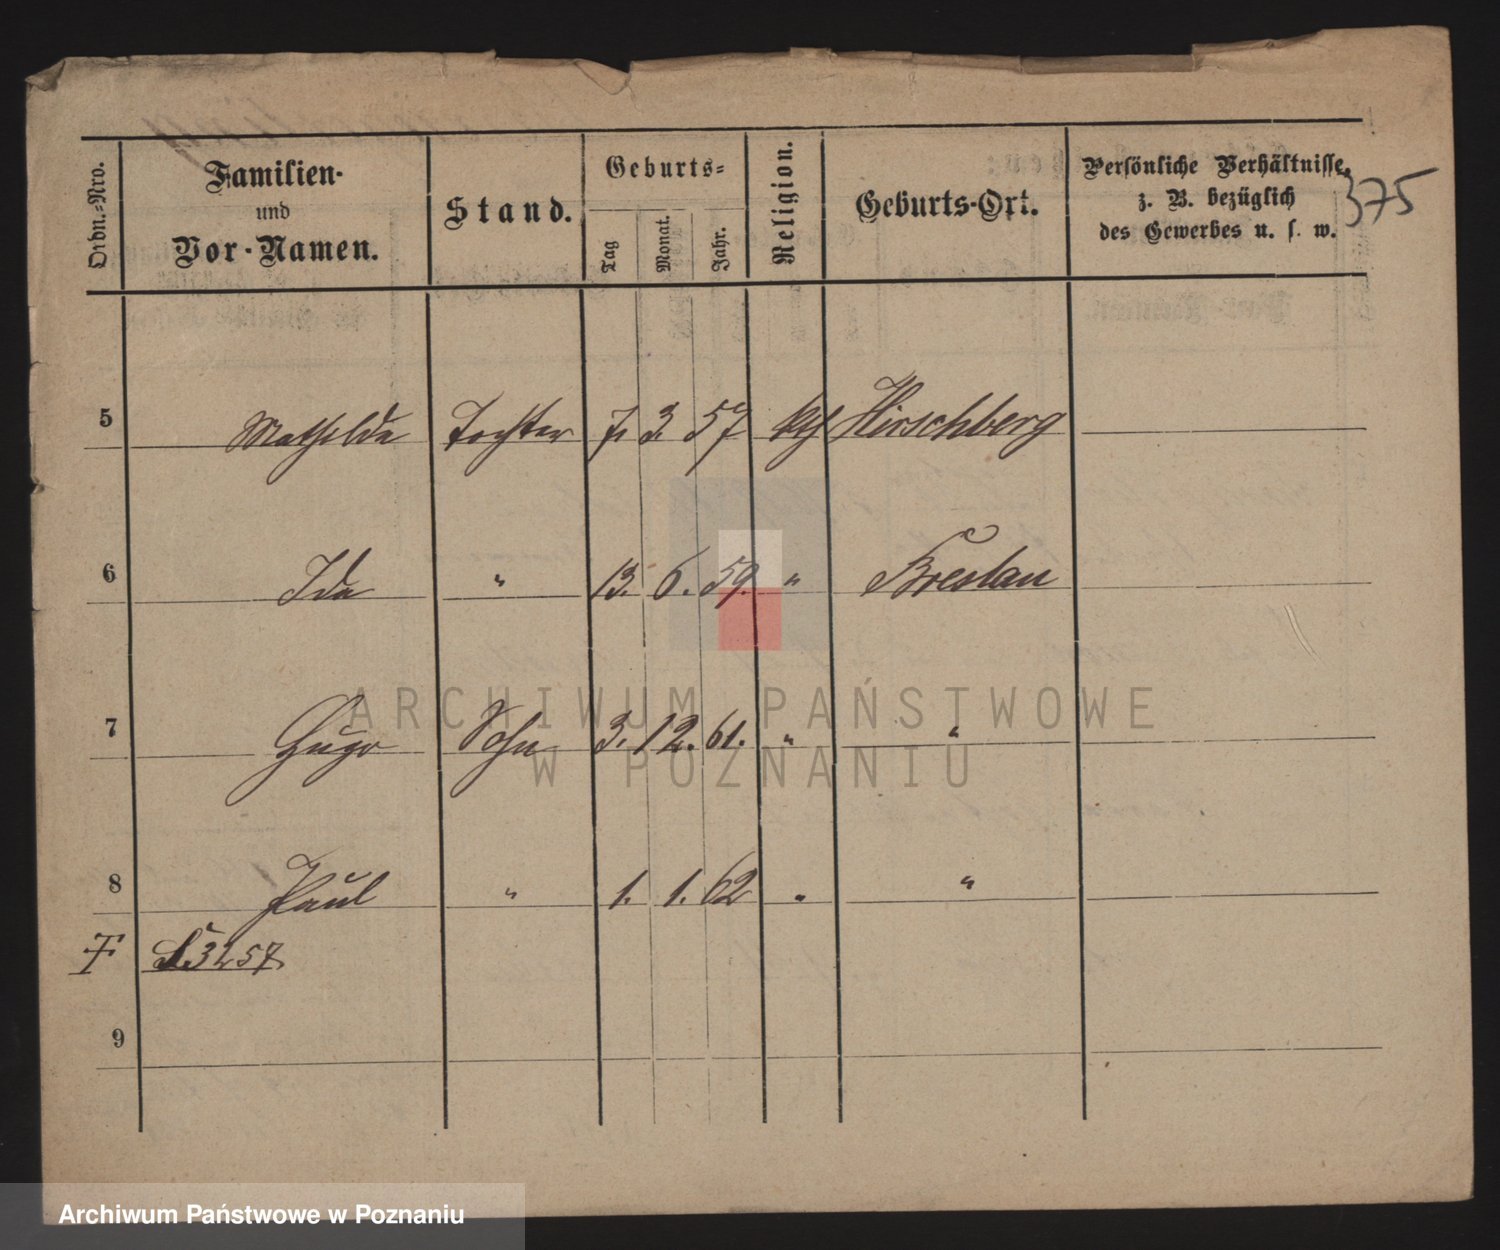 Ordn.-Nro.
Familien-
und
Vor-Namen.
Stand.
Geburts-
Tag
Monat.
Jahr.
Religion.
Geburts-Ort.
Persönliche Verhältnisse,
z. B. bezüglich
des Gewerbes u. s. w.
375
5 Mathilde Tochter 7. 3. 57 kth Hirschberg
6 Ida " 13. 6. 59. " Breslau
7 Hugo Sohn 3. 12. 61. " "
8 Paul " 1. 1. 62 " "
3257
9
ARCHIWUM PAŃSTWOWE
W POZNANIU
Archiwum Państwowe w Poznaniu